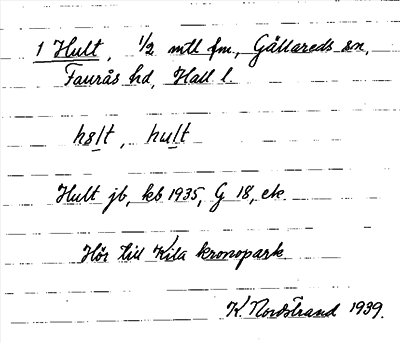 1 Hult, 1/2 mtl fm., Gällareds sn,
Faurås hd, Hall l.
hult
Hult jb, kb 1935, G 18, ek.
Hör till Kila kronopark
K Nordstrand 1939.